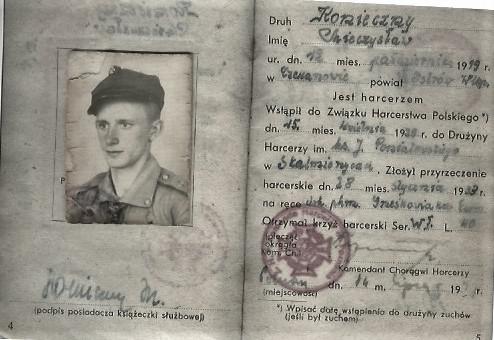 Konieczny M.
(podpis posiadacza książeczki służbowej)
4
Druh Konieczny
Imię Mieczysław
ur. dn. 12 mies. października 1919 r.
w powiat Ostrów Wlkp.
Jest harcerzem
Wstąpił do Związku Harcerstwa Polskiego*)
dn. 15. mies. kwietnia 1930 r. do Drużyny
Harcerzy im. ks. J. Poniatowskiego
w Skalmierzycach. Złożył przyrzeczenie
harcerskie dn. 28 mies. stycznia 1933 r.
na ręce
Otrzymał krzyż harcerski Ser. L.
(pieczęć
okrągła
Kom. Ch.)
Komendant Chorągwi Harcerzy
dn. 14 m. 193 r.
(miejscowość)
*) Wpisać datę wstąpienia do drużyny zuchów
(jeśli był zuchem)
5